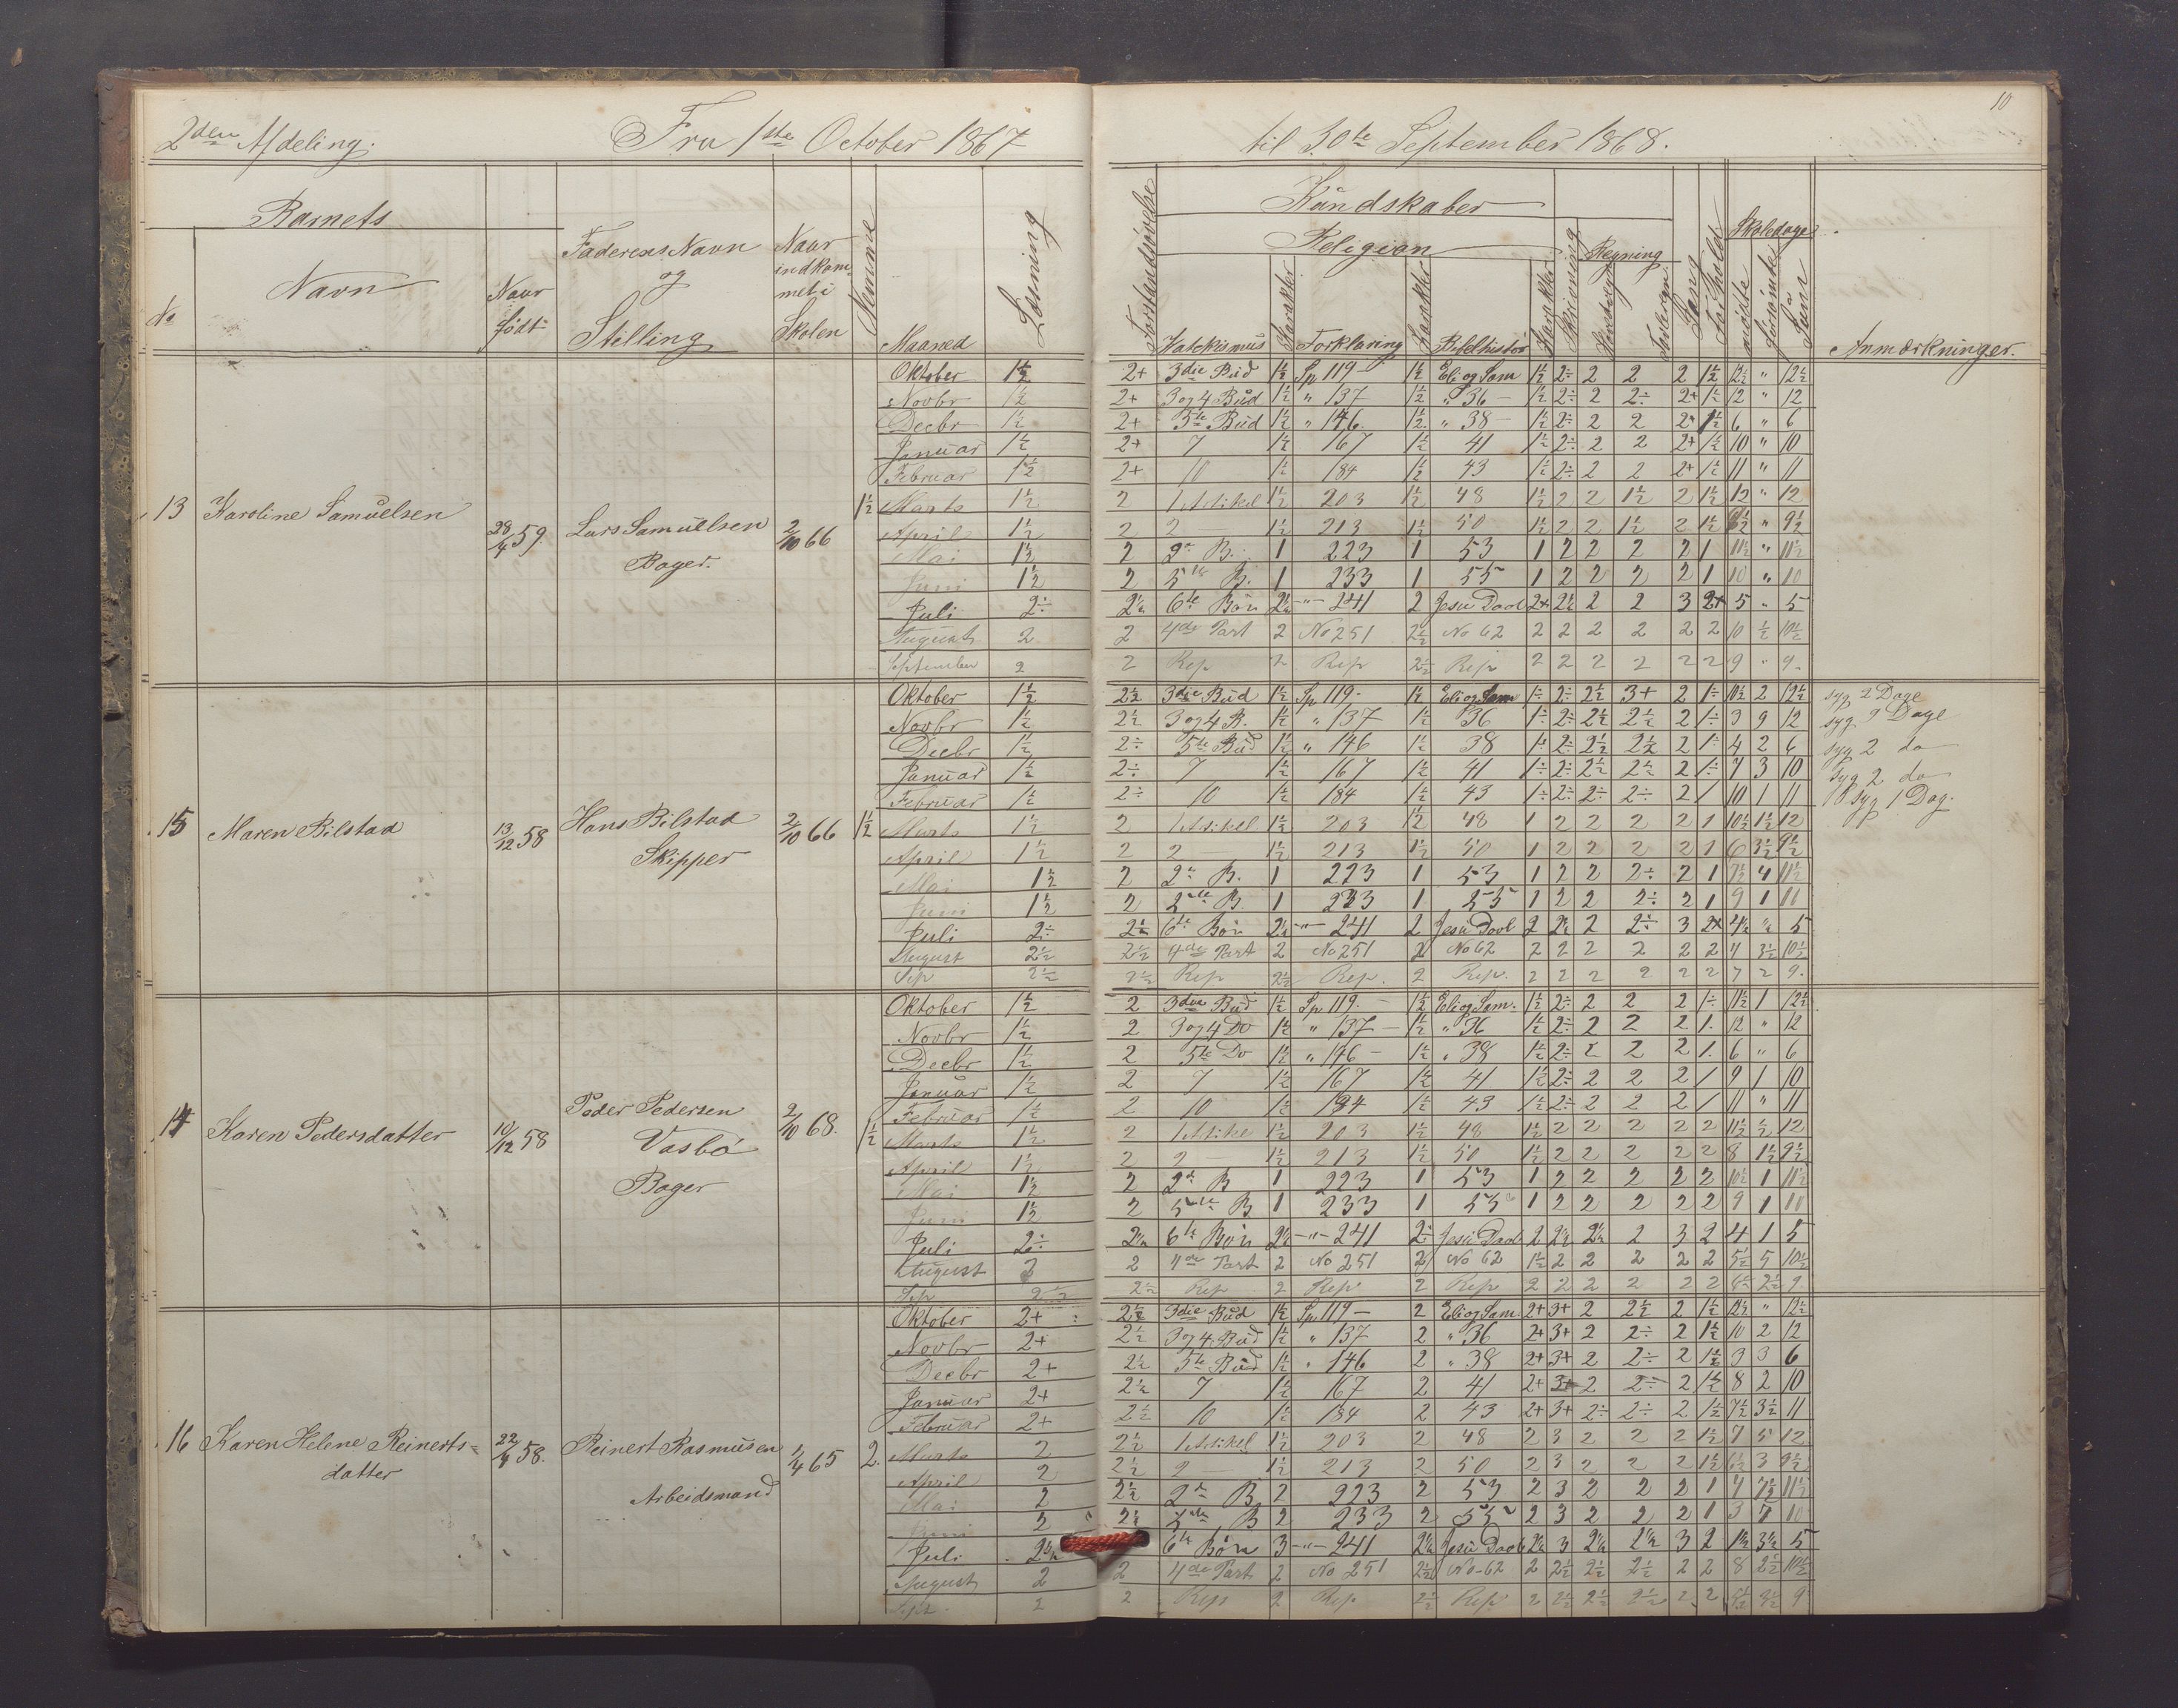 2den Afdeling.
Fra 1ste October 1867
til 30te September 1868.
10
Barnets
No
Navn
Naar født
Faderens Navn og Stilling
Naar indkommet i Skolen
Nemme
Maaned
Læsning
Forstandsøvelse
Kundskaber
Religion
Katekismus
Karakter
Forklaring
Karakter
Bibelhistor
Karakter
Skrivning
Regning
Hoved
Tavleregn
Sang
Forhold
Skoledage
mødte
forsømte
Sum
Anmærkninger.
13 Karoline Samuelsen 28/4 59. Lars Samuelsen Bager. 2/10 66 1½
Oktober 1½ 2+ 3die Bud 1½ Sp 119 1½ Eli og Sam 1½ 2÷ 2 2 2 1½ 12½ " 12½
Novbr 1½ 2+ 3 og 4 Bud 1½ " 137 1½ " 36 1½ 2÷ 2 2÷ 2+ 1½ 12 " 12
Decbr 1½ 2+ 5te Bud 1½ " 146 1½ " 38 1½ 2÷ 2 2 2+ 1½ 6 " 6
Januar 1½ 2+ 7 1½ 167 1½ 41 1½ 2÷ 2 2 2+ 1½ 10 " 10
Februar 1½ 2+ 10 1½ 184 1½ 43 1½ 2÷ 2 2 2+ 1½ 11 " 11
Marts 1½ 2 1 Artikel 1½ 203 1½ 48 1½ 2 2 1½ 2 1½ 12 " 12
April 1½ 2 2 1½ 213 1½ 50 1½ 2 2 1½ 2 1½ 9½ " 9½
Mai 1½ 2 2n B. 1 223 1 53 1 2 2 2 2 1 11½ " 11½
Juni 1½ 2 5te B. 1 233 1 55 1 2 2 2 2 1 10 " 10
Juli 2÷ 2½ 6te Bøn 2½ -"- 241 2 Jesu Daab 2+ 2½ 2 2 3 2+ 5 " 5
August 2 2 4de Part 2 No 251 2½ No 62 2 2 2 2 2 2 10 ½ 10½
September 2 2 Rep 2 Rep 2½ Rep 2 2 2 2 2 2 9 " 9
15 Maren Bilstad 13/12 58 Hans Bilstad Skipper 2/10 66 1½
Oktober 1½ 2½ 3die Bud 1½ Sp 119 1½ Eli og Sam 1÷ 2÷ 2½ 3+ 2 1÷ 10½ 2 12½ syg 2 Dage
Novbr 1½ 2½ 3 og 4 B. 1½ " 137 1½ 36 1÷ 2÷ 2½ 2½ 2 1÷ 3 9 12 syg 9 Dage
Decbr 1½ 2÷ 5te Bud 1½ " 146 1½ 38 1÷ 2÷ 2½ 2½ 2 1÷ 4 2 6 syg 2 do
Januar 1½ 2÷ 7 1½ 167 1½ 41 1÷ 2÷ 2½ 2½ 2 1÷ 7 3 10 syg 2 do
Februar 1½ 2÷ 10 1½ 184 1½ 43 1÷ 2÷ 2÷ 2÷ 2 1 10 1 11 syg 1 Dag.
Marts 1½ 2 1 Artikel 1½ 203 1½ 48 1 2 2 2 2 1 10½ 1½ 12
April 1½ 2 2 1½ 213 1½ 50 1 2 2 2 2 1 6 3½ 9½
Mai 1½ 2 2n B. 1 223 1 53 1 2 2 2÷ 2 1 7½ 4 11½
Juni 1½ 2 5te B. 1 233 1 55 1 2 2 2÷ 2 1 9 1 10
Juli 2÷ 2½ 6te Bøn 2½ -"- 241 2 Jesu Daab 2 2½ 2 2÷ 3 2+ 4½ ½ 5
August 2½ 2½ 4de Part 2 No 251 2 No 62 2 2 2 2 2 2 7 3½ 10½
Sep 2½ 2½ Rep 2½ Rep. 2 Rep. 2 2 2 2 2 2 7 2 9.
14 Karen Pedersdatter 10/12 58 Peder Pedersen Vasbø Bager 2/10 68. 1½
Oktober 1½ 2 3die Bud 1½ Sp 119. 1½ Eli og Sam. 1½ 2÷ 2 2 2 1÷ 11½ 1 12½
Novbr 1½ 2 3 og 4 Do 1½ " 137 1½ " 36 1½ 2÷ 2 2 2 1. 12 " 12
Decbr 1½ 2 5te Do 1½ " 146 1½ " 38 1½ 2÷ 2 2 2 1. 6 " 6
Januar 1½ 2 7 1½ 167 1½ 41 1½ 2÷ 2 2 2 1 9 1 10
Februar 1½ 2 10 1½ 184 1½ 43 1½ 2÷ 2 2 2 1 11 " 11
Marts 1½ 2 1 Artikel 1½ 203 1½ 48 1½ 2 2 2 2 2 11½ ½ 12
April 1½ 2 2 1½ 213 1½ 50 1½ 2 2 2 2 2 8 1½ 9½
Mai 1½ 2 2n B 1 223 1 53 1 2 2 2 2 2 10½ 1 11½
Juni 1½ 2 5te B 1 233 1 55 1 2 2 2 2 2 9 1 10
Juli 2÷ 2½ 6te Bøn 2½ -"- 241 2÷ Jesu Daab 2 2½ 2½ 2 3 2 4 1 5
August 2 2 4de Part 2 No 251 2 No 62 1½ 2 2 2 2 2 5½ 5 10½
Sep 2½ 2½ Rep 2 Rep 2 Rep 2 2 2 2 2 2 6½ 2½ 9
16 Karen Helene Reinertsdatter 22/4 58. Reinert Rasmusen Arbeidsmand 1/4 65 2.
Oktober 2+ 2½ 3die Bud 1½ Sp 119 2 Eli og Sam. 2+ 3+ 2 2½ 2 1½ 12½ " 12½
Novbr 2+ 2½ 3 og 4 Bud 1½ " 137 2 " 36 2+ 3+ 2 2÷ 2 1½ 10 2 12
Decbr 2+ 2½ 5te Bud 1½ " 146 2 " 38 2+ 3+ 2 2÷ 2 1½ 3 3 6
Januar 2+ 2½ 7 1½ 167 2 41 2+ 3+ 2 2÷ 2 1½ 8 2 10
Februar 2+ 2½ 10 1½ 184 2 43 2+ 3+ 2÷ 2÷ 2 1½ 7½ 3½ 11
Marts 2 2½ 1 Artikel 1½ 203 2 48 2 3 2 2 2 1½ 7 5 12
April 2 2½ 2 1½ 213 2 50 2 3 2 2 2 1½ 6½ 3 9½
Mai 2 2½ 2n B. 2 223 2 53 2 3 2 2 2 1 4 7½ 11½
Juni 2 2½ 5te B 2 233 2 55 2 3 2 2 2 1 3 7 10
Juli 2½ 6te Bøn 3 -"- 241 2½ Jesu Daab 2½ 3 2½ 2½ 3 2 1½ 3½ 5
August 2 2 4de Part 2 No 251 2½ No 62 2 2½ 2½ 2½ 2 2 8 2½ 10½
Sept. 2 2 Rep 2 Rep 2½ Rep 2 2½ 2½ 2½ 2 2 6½ 2½ 9